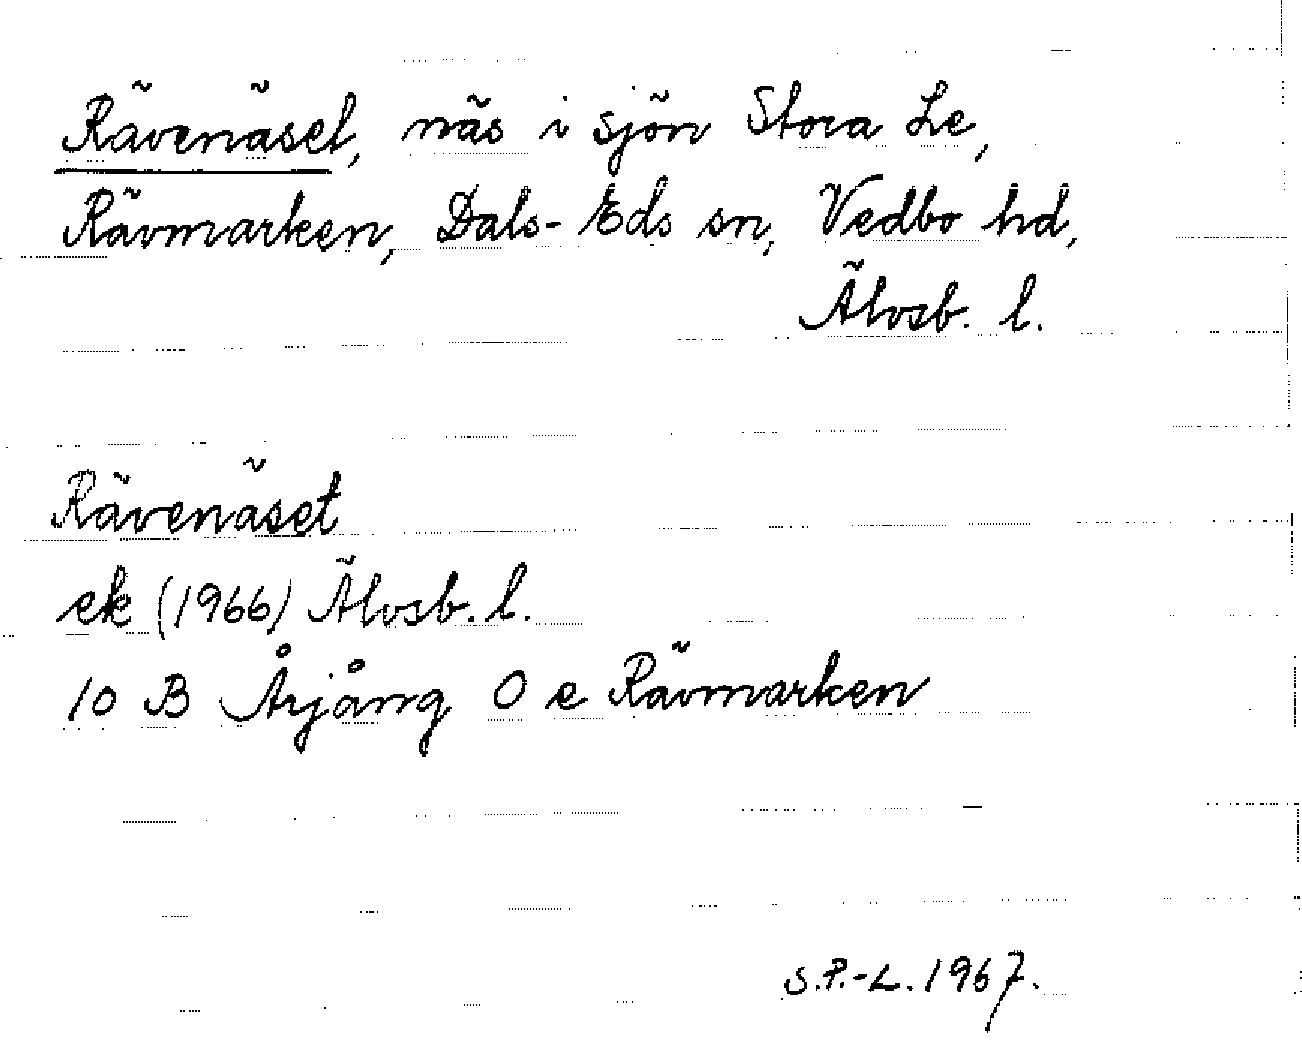 Rävenäset, näs i sjön Stora Le,
Rävmarken, Dals-Eds sn, Vedbo hd,
Älvsb. l.
Rävenäset
ek (1966) Älvsb. l.
10 B Årjäng O e Rävmarken
S.P.-L. 1967.